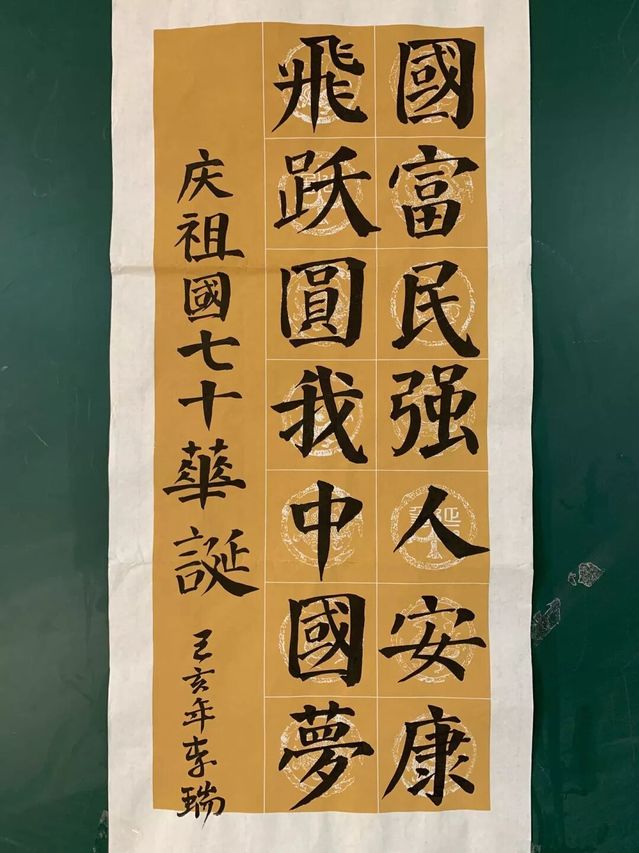 國富民强人安康
飛跃圓我中國夢
庆祖國七十華誕
己亥年李瑞